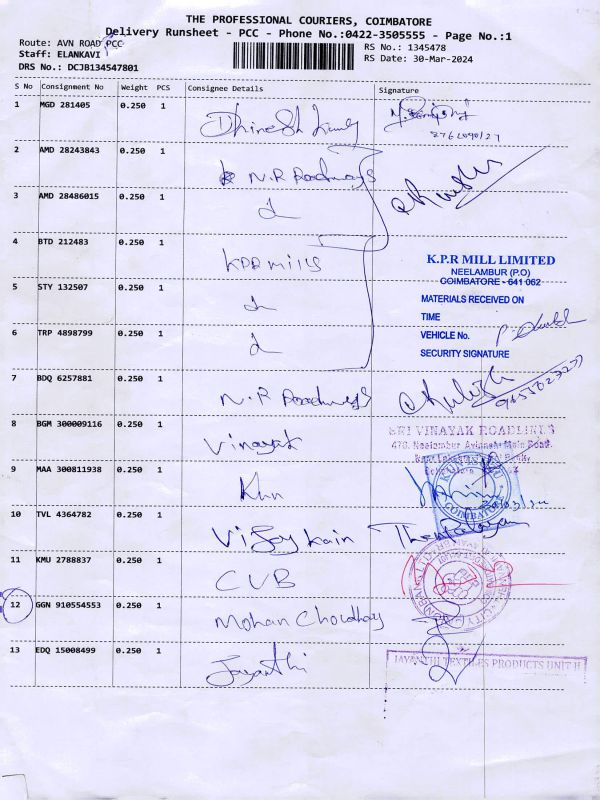 THE PROFESSIONAL COURIERS, COIMBATORE
Delivery Runsheet - PCC - Phone No.:0422-3505555 - Page No.:1
Route: AVN ROAD PCC
RS No.: 1345478
Staff: ELANKAVI
RS Date: 30-Mar-2024
DRS No.: DCJB134547801
S No Consignment No Weight PCS Consignee Details Signature
1 MGD 281405 0.250 1 Dhinesh kumar
2 AMD 28243843 0.250 1 N.R Roadways
3 AMD 28486015 0.250 1
4 BTD 212483 0.250 1 KPR mills
K.P.R MILL LIMITED
NEELAMBUR (P.O)
COIMBATORE - 641 062
5 STY 132507 0.250 1
MATERIALS RECEIVED ON
TIME
6 TRP 4898799 0.250 1
VEHICLE No.
SECURITY SIGNATURE
7 BDQ 6257881 0.250 1 N.R Roadways
8 BGM 300009116 0.250 1 Vinayak
SRI VINAYAK ROADLINES
479, Neelambur Avinashi Main Road,
9 MAA 300811938 0.250 1
COIMBATORE
10 TVL 4364782 0.250 1 Vijay kain
11 KMU 2788837 0.250 1 CUB
12 GGN 910554553 0.250 1 Mohan Choudhary
13 EDQ 15008499 0.250 1 Jayanthi
JAYANTHI TEXTILES PRODUCTS UNIT II